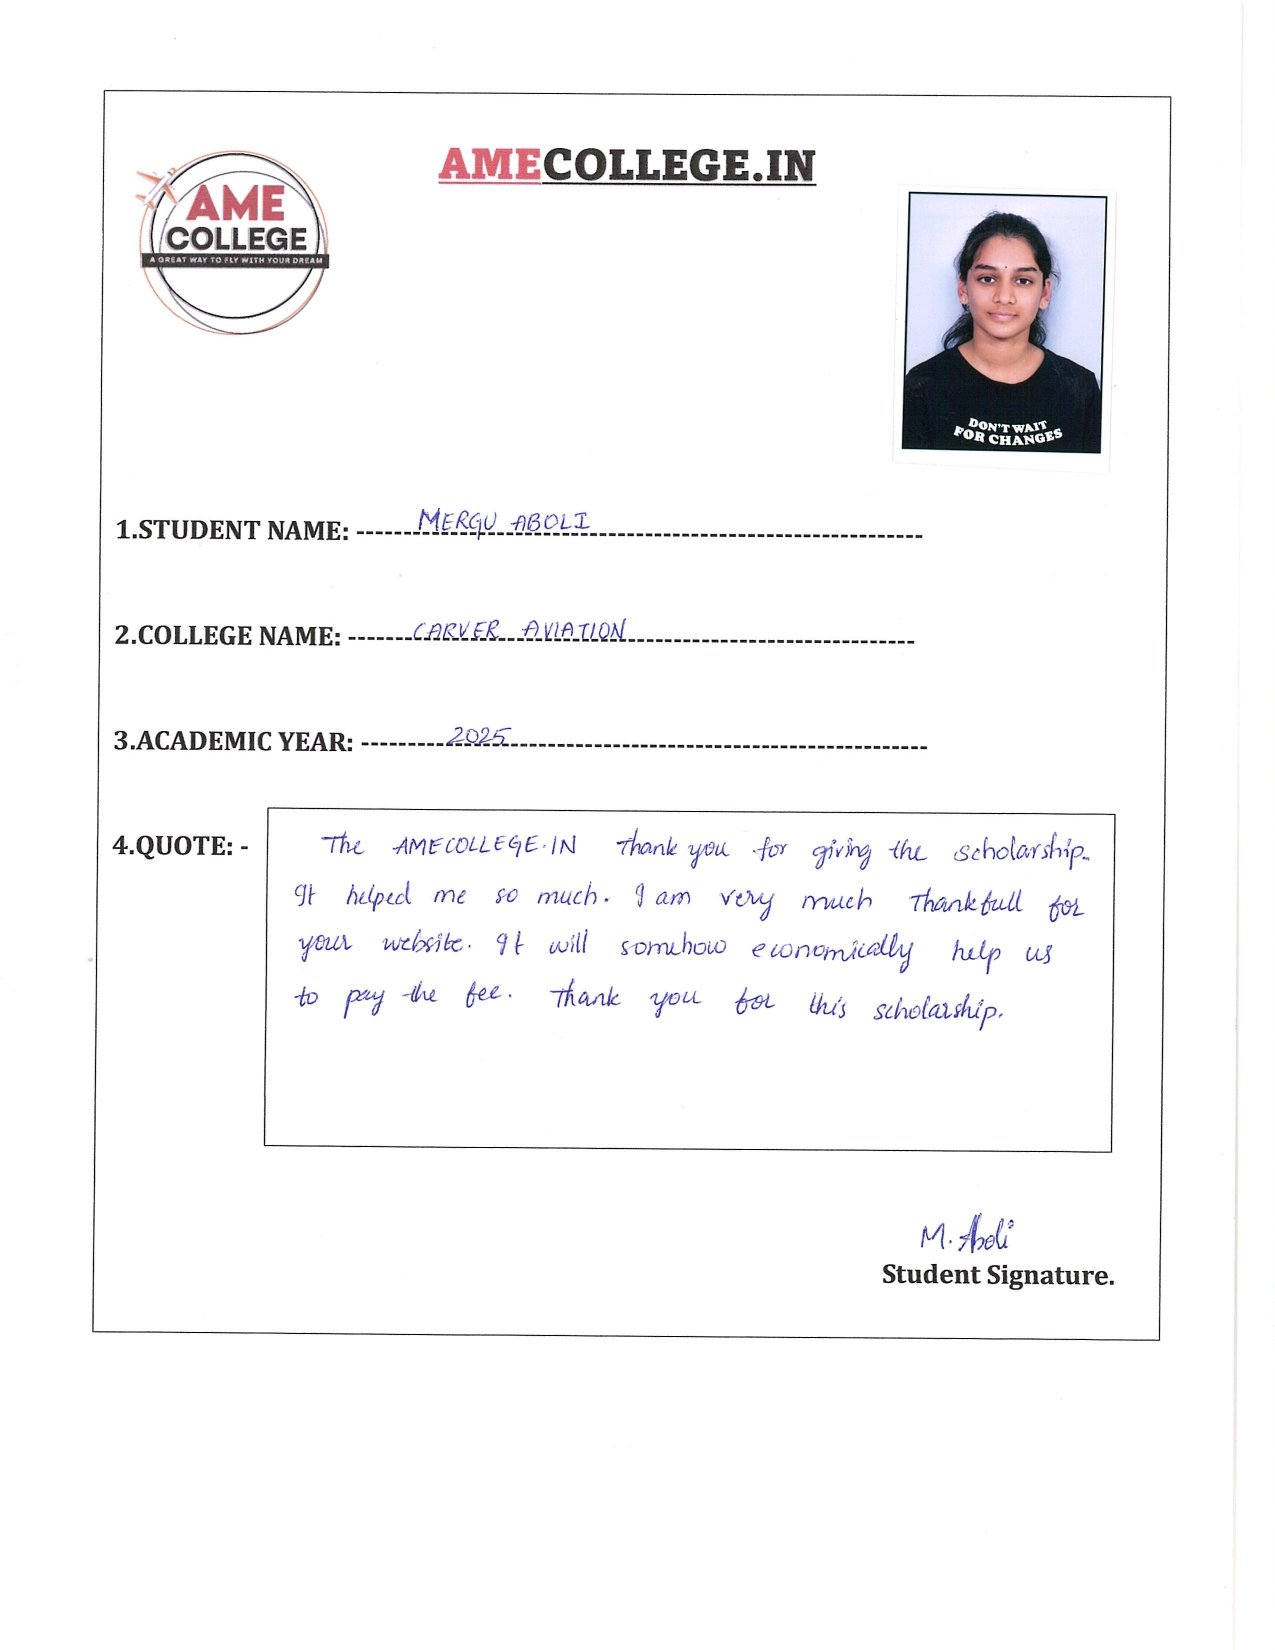 AMECOLLEGE.IN
AME
COLLEGE
A GREAT WAY TO FLY WITH YOUR DREAM
DON'T WAIT
FOR CHANGES
1.STUDENT NAME: MERGU ABOLI
2.COLLEGE NAME: CARVER AVIATION
3.ACADEMIC YEAR: 2025
4.QUOTE: -
The AMECOLLEGE.IN Thank you for giving the scholarship.
It helped me so much. I am very much Thankfull for
your website. It will somehow economically help us
to pay the fee. Thank you for this scholarship.
M. Aboli
Student Signature.